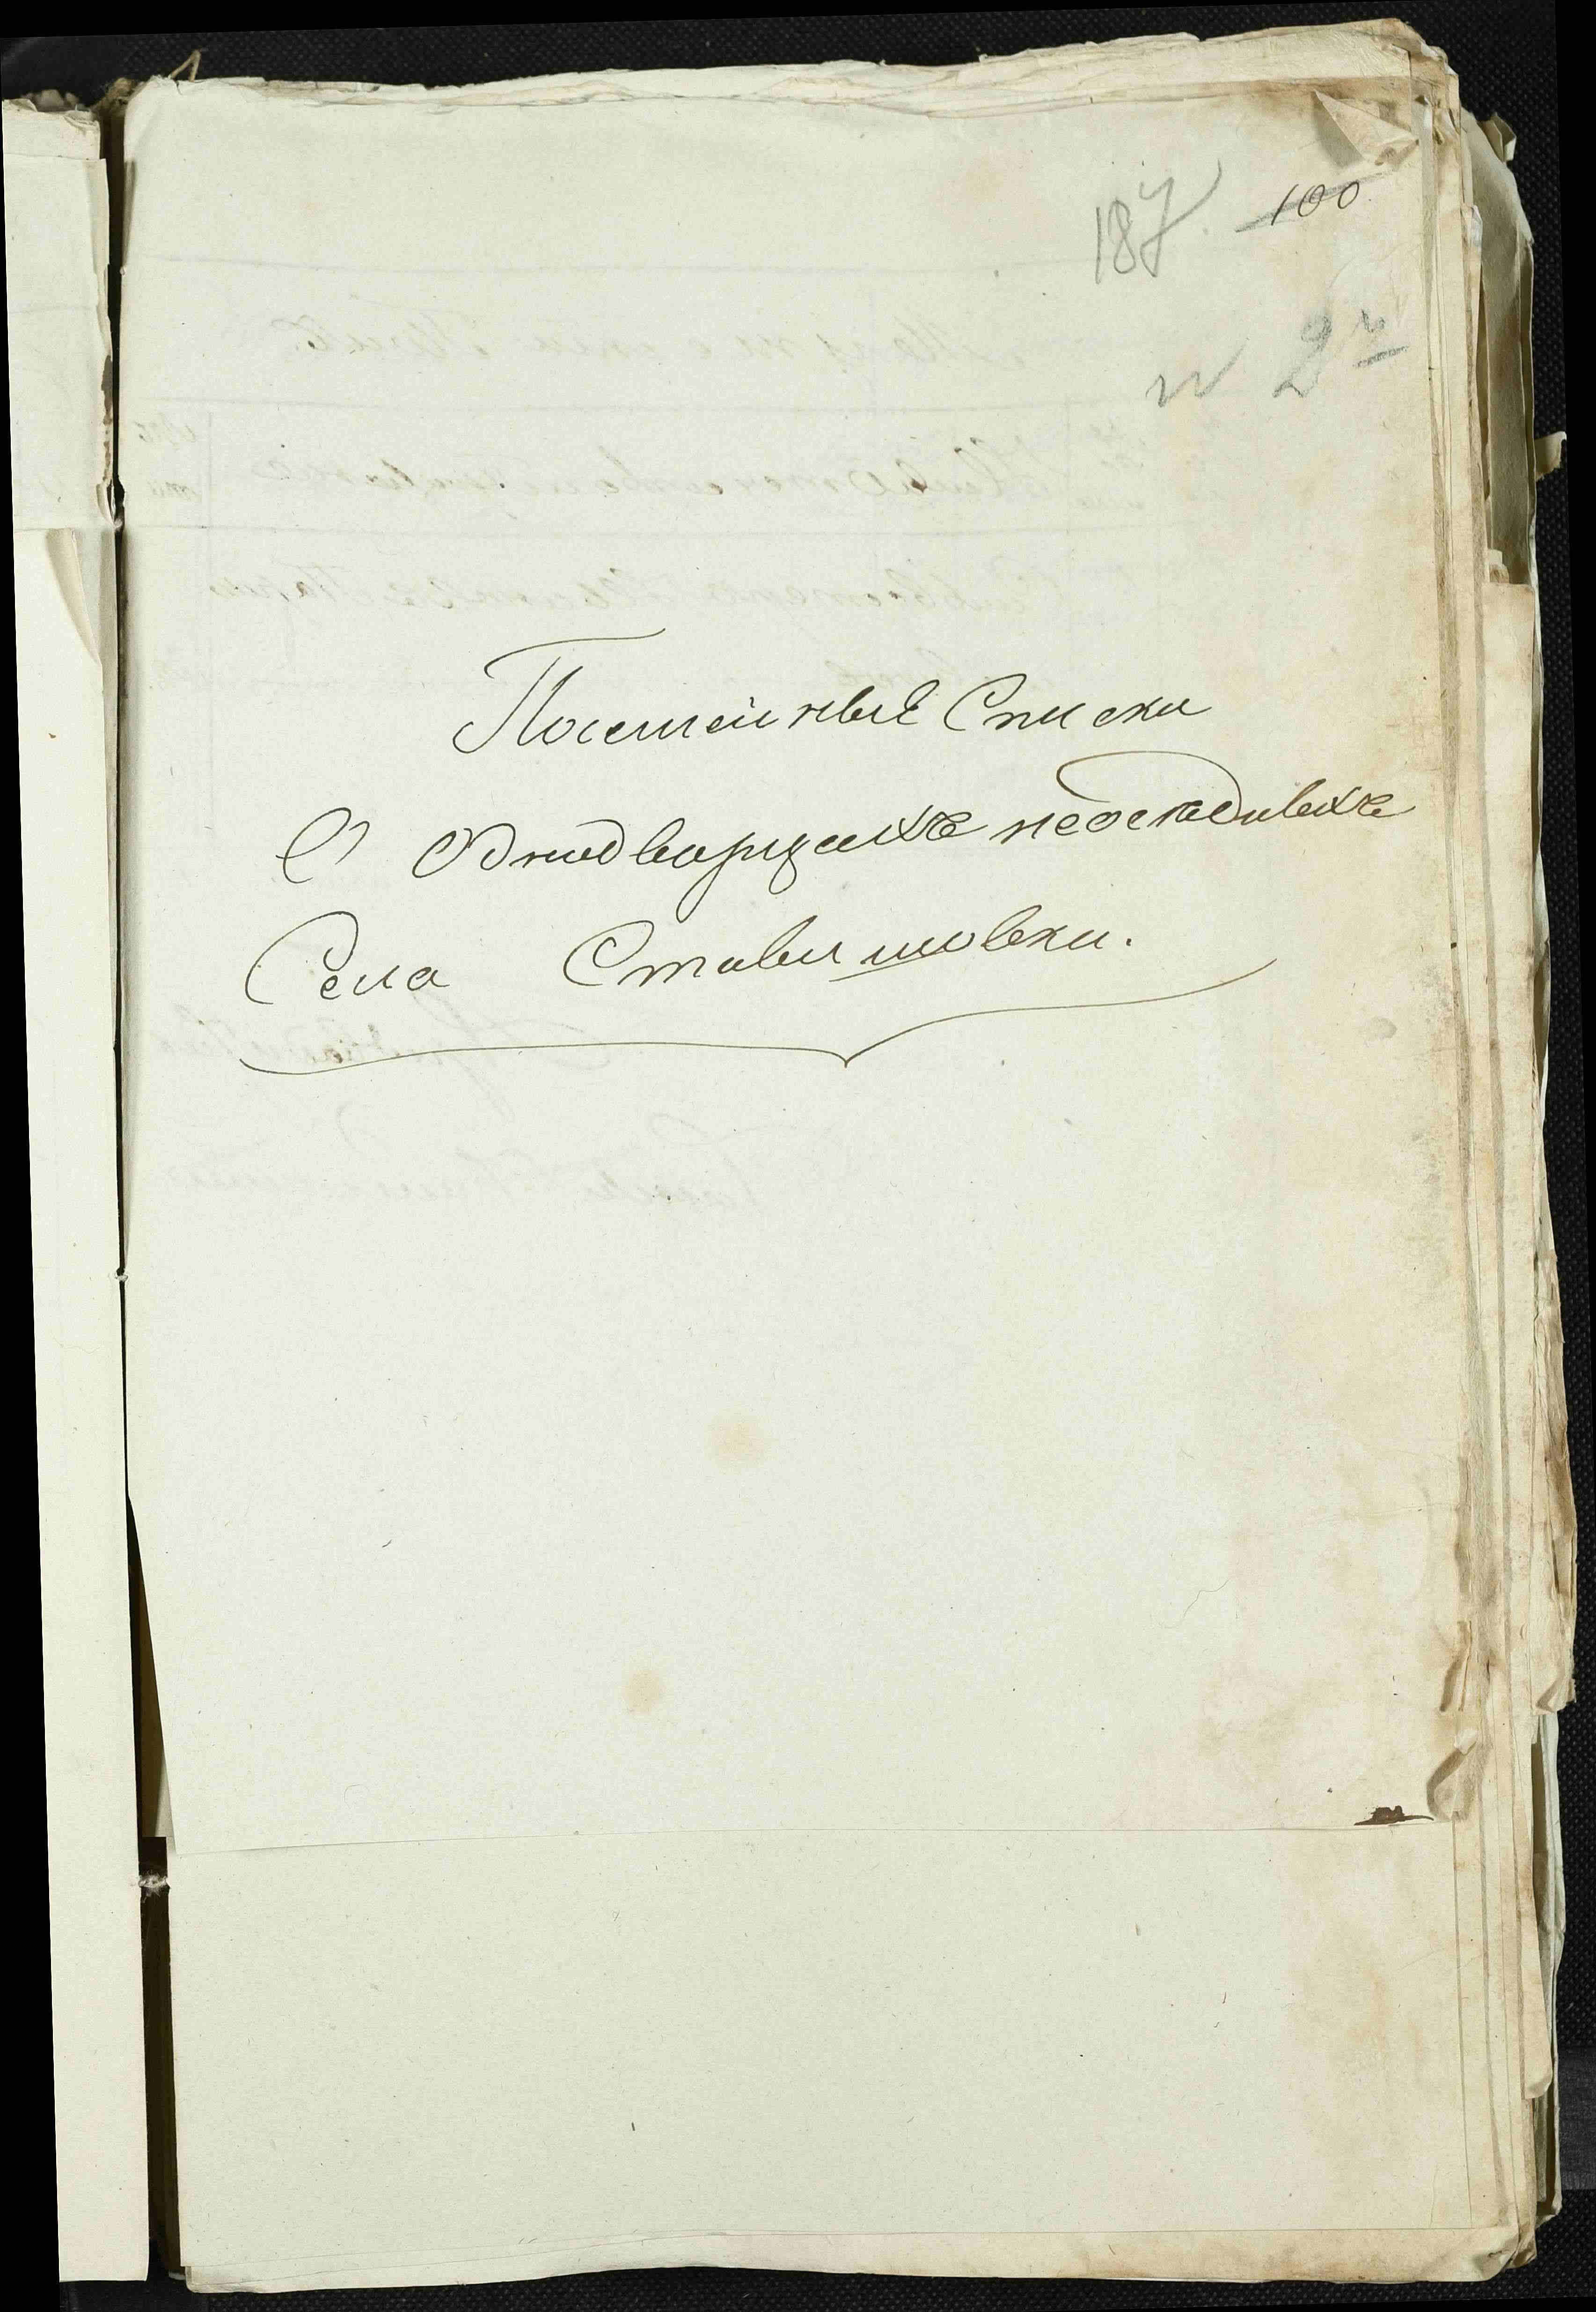 187. 100
№ 2й
Посемейные Списки
О Однодворцахъ неоседлыхъ
Села Ставишовки.